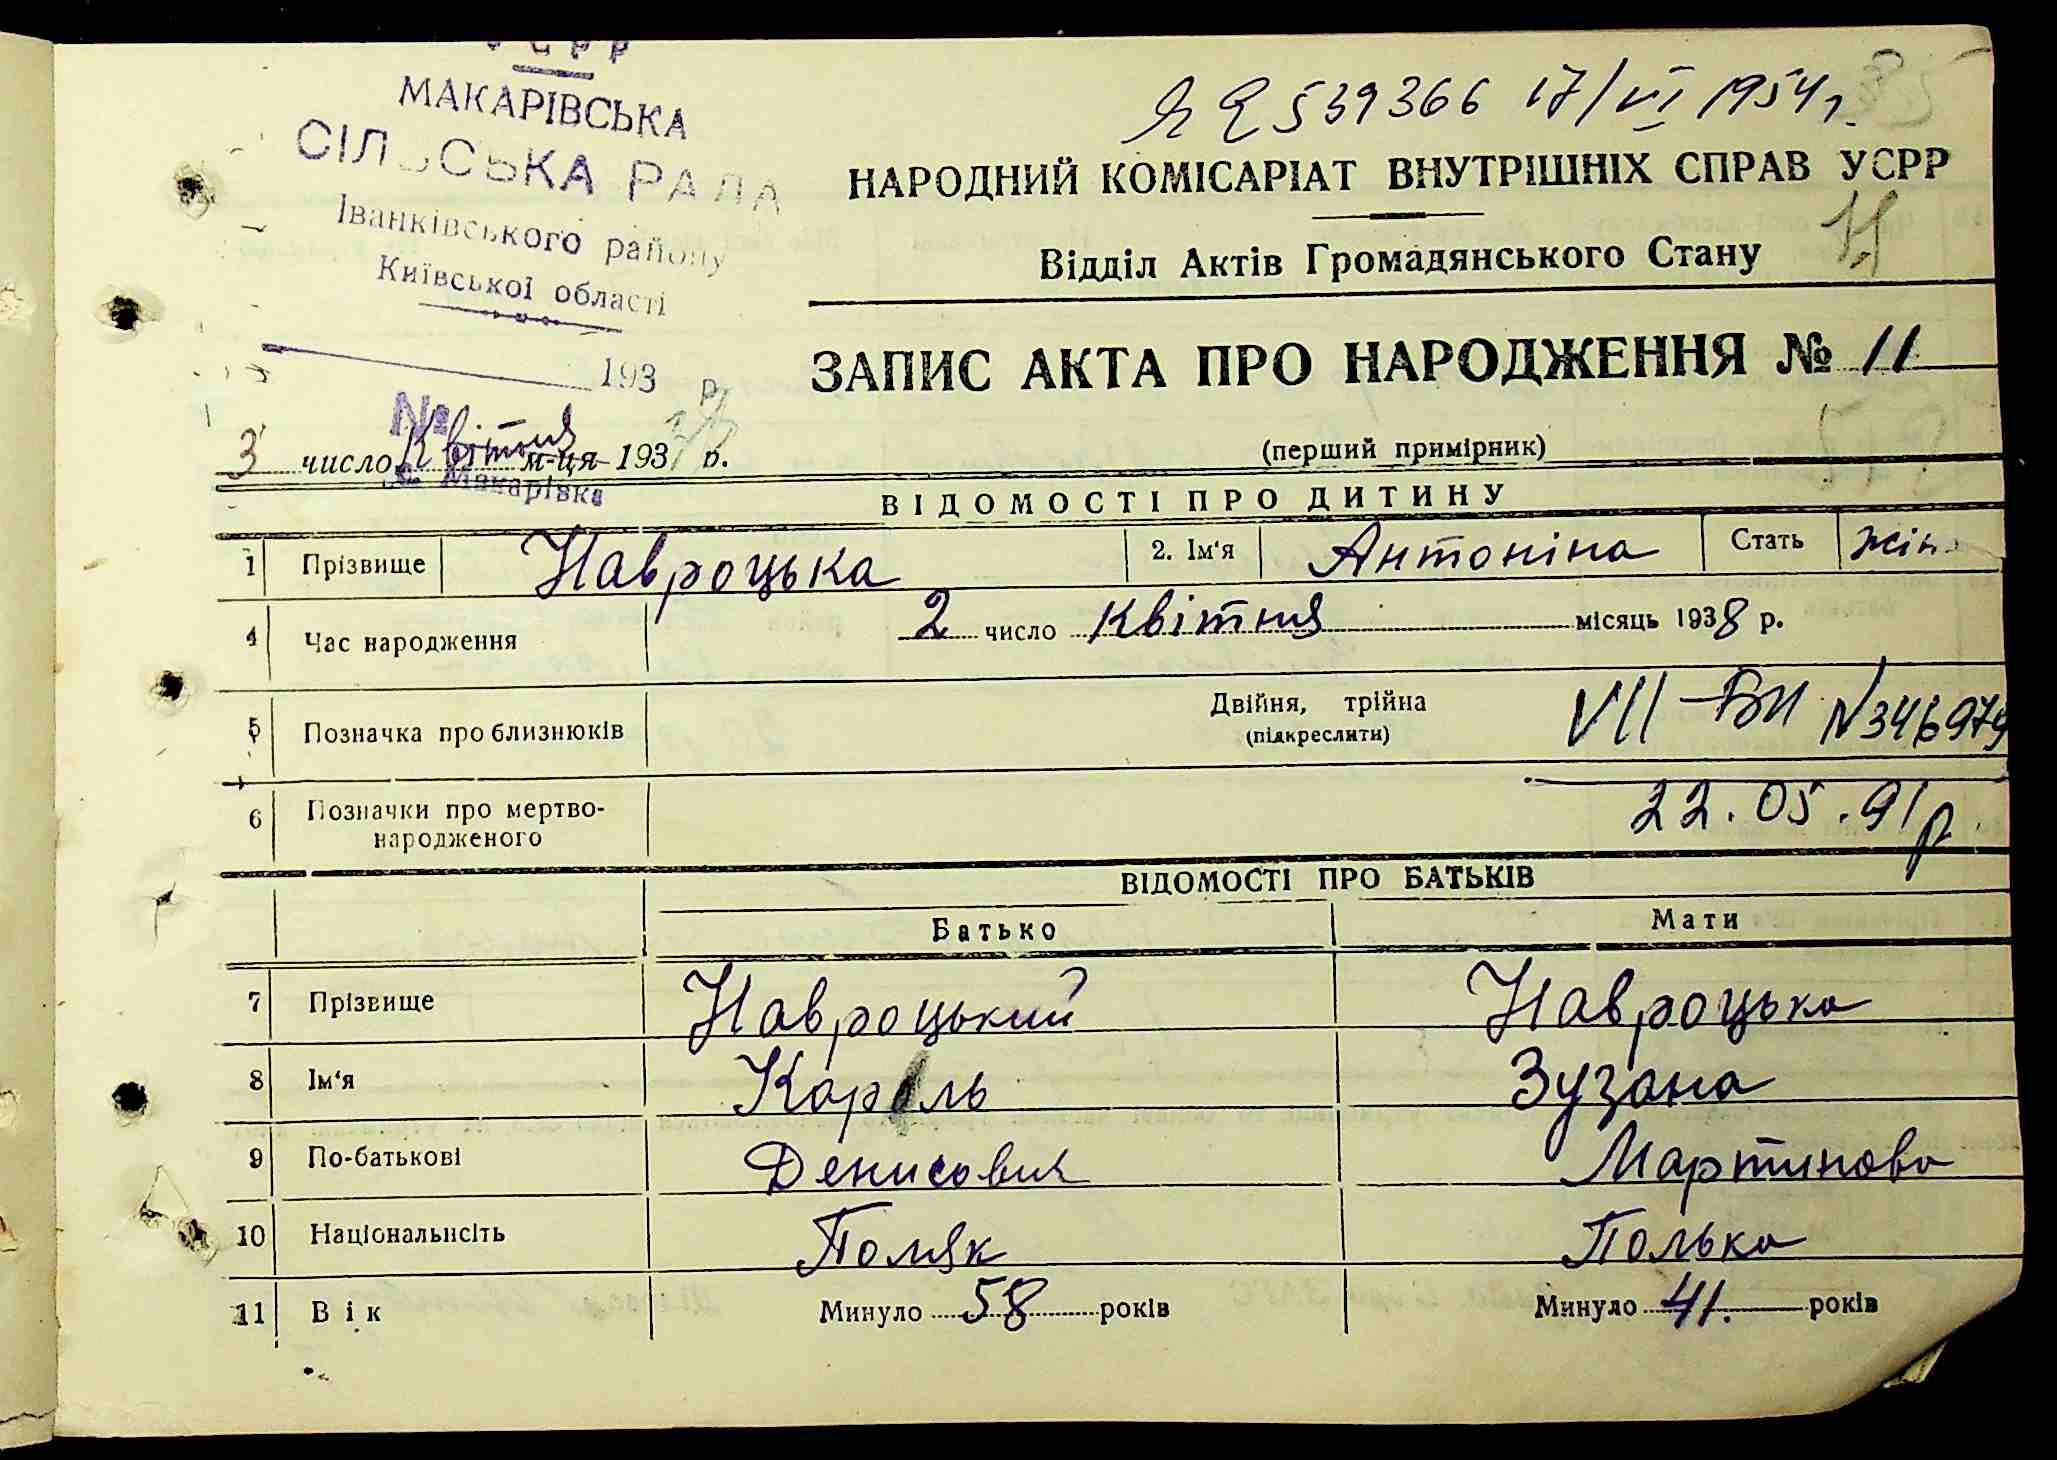 УСРР
МАКАРІВСЬКА
СІЛЬСЬКА РАДА
Іванківського району
Київської області
193 р.
№
с. Макарівка
539366 17/VI 1954 г.
НАРОДНИЙ КОМІСАРІАТ ВНУТРІШНІХ СПРАВ УСРР
11
Відділ Актів Громадянського Стану
ЗАПИС АКТА ПРО НАРОДЖЕННЯ № 11
3 число Квітня м-ця 1938 р.
(перший примірник)
ВІДОМОСТІ ПРО ДИТИНУ
1 Прізвище Навроцька 2. Ім'я Антоніна Стать жін.
4 Час народження 2 число Квітня місяць 1938 р.
5 Позначка про близнюків Двійня, трійна (підкреслити) VII-БК №346979
6 Позначки про мертво-народженого 22.05.91р.
ВІДОМОСТІ ПРО БАТЬКІВ
Батько Мати
7 Прізвище Навроцький Навроцька
8 Ім'я Кароль Зузана
9 По-батькові Денисович Мартинова
10 Національність Поляк Полька
11 Вік Минуло 58 років Минуло 41. років